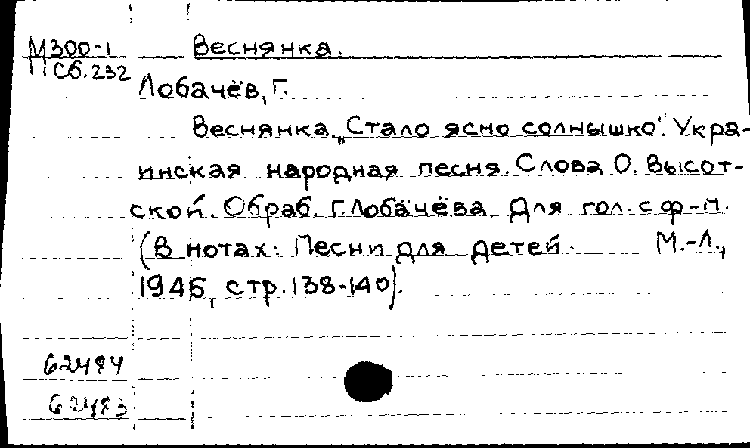 М300-1 Веснянка.
Сб.232
Лобачёв, Г.
Веснянка „Стало ясно солнышко". Укра-
инская народная песня. Слова О. Высот-
ской. Обраб. Г.Лобачёва. Для гол. с ф-п.
(В нотах: Песни для детей. М.-Л.,
1945, стр. 138-140).
62484
62483